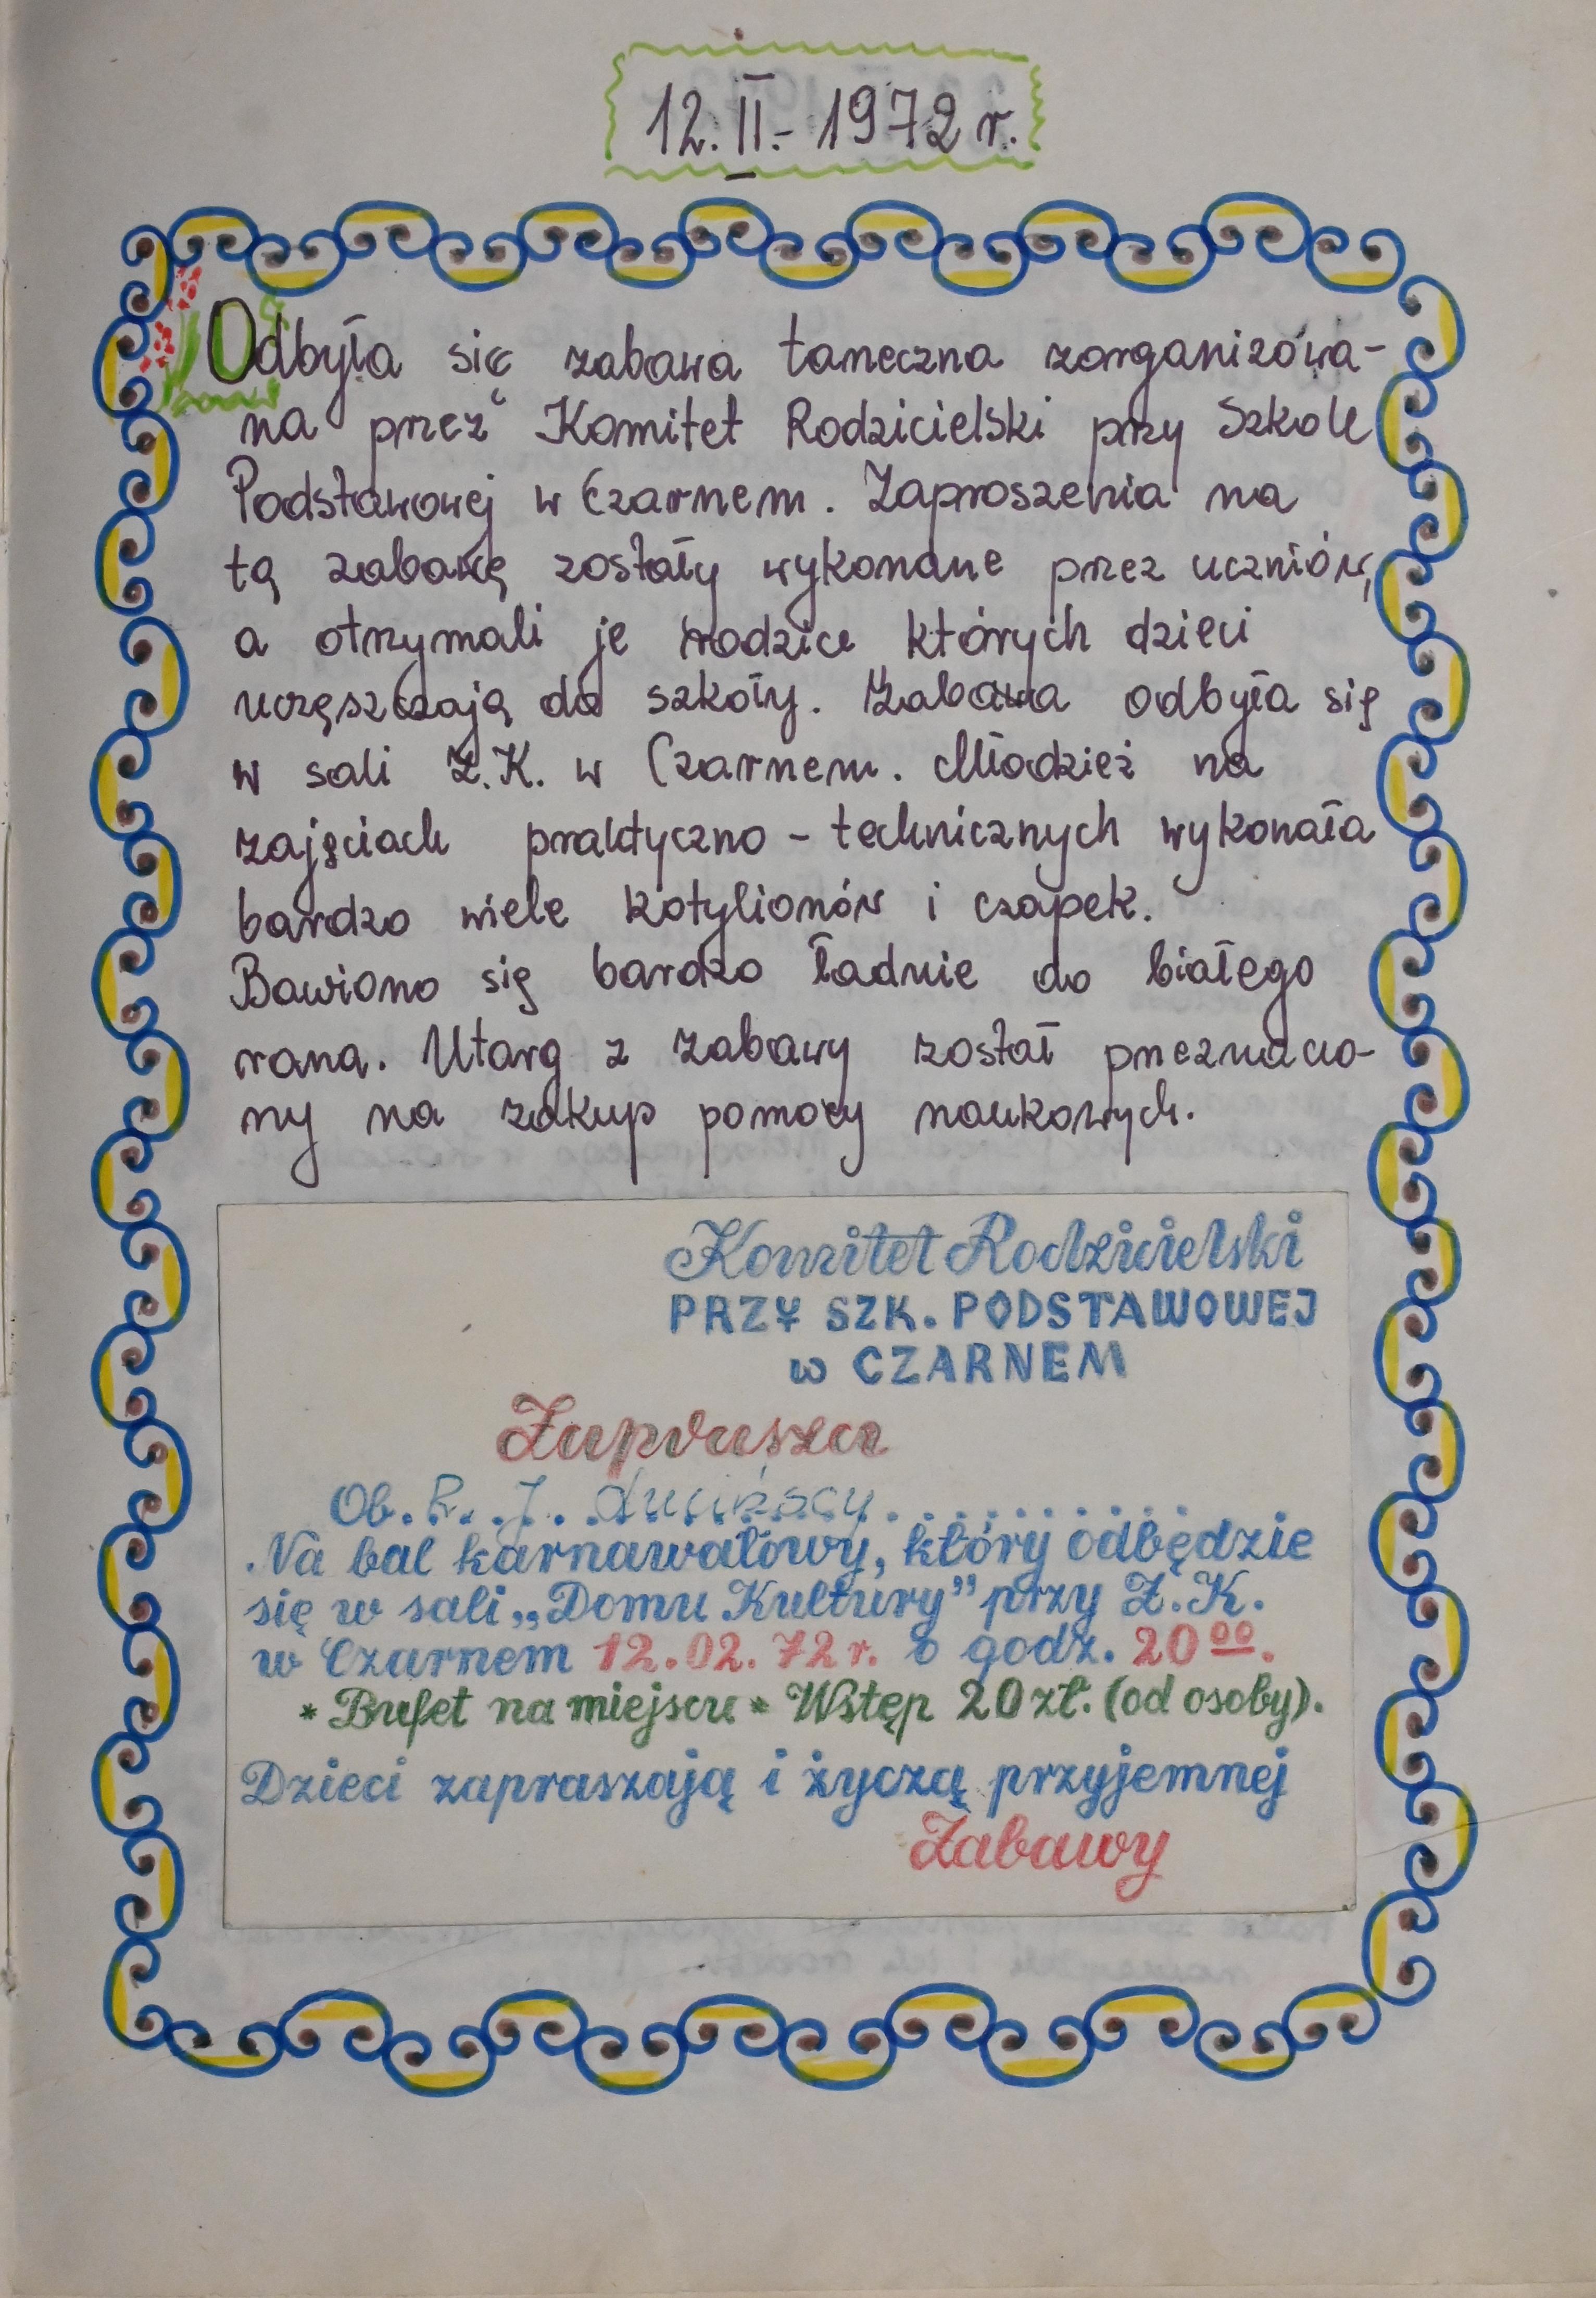 12.II.-1972 r.
Odbyła się zabawa taneczna zorganizowa-
na przez Komitet Rodzicielski przy Szkole
Podstawowej w Czarnem. Zaproszenia na
tą zabawę zostały wykonane przez uczniów,
a otrzymali je rodzice których dzieci
uczęszczają do szkoły. Zabawa odbyła się
w sali Z.K. w Czarnem. Młodzież na
zajęciach praktyczno - technicznych wykonała
bardzo wiele kotylionów i czapek.
Bawiono się bardzo ładnie do białego
rana. Utarg z zabawy został przeznaczo-
ny na zakup pomocy naukowych.
Komitet Rodzicielski
PRZY SZK. PODSTAWOWEJ
w CZARNEM
Zaprasza
Ob. R. J.
Na bal karnawałowy, który odbędzie
się w sali „Domu Kultury” przy Z.K.
w Czarnem 12.02.72 r. o godz. 20⁰⁰.
* Bufet na miejscu * Wstęp 20 zł. (od osoby).
Dzieci zapraszają i życzą przyjemnej
Zabawy